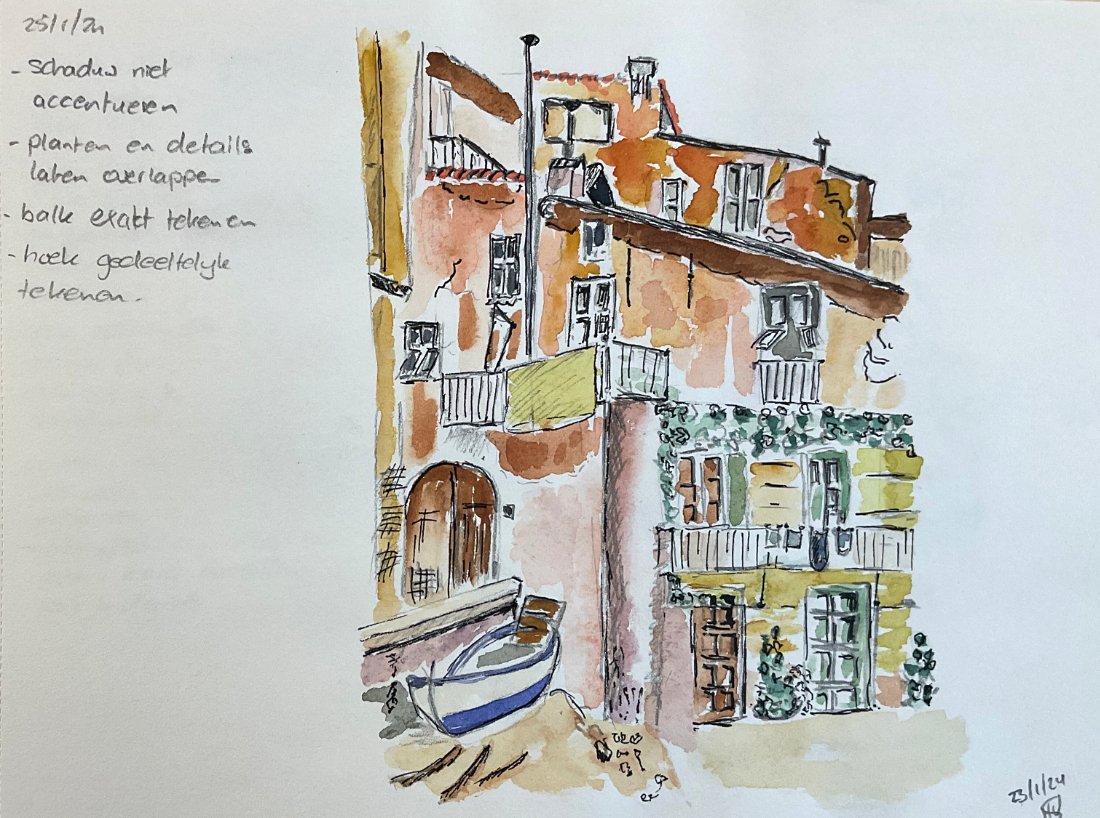 25/1/24
- schaduw niet
accentueren
- planten en details
laten overlappen
- balk exakt tekenen
- hoek gedeeltelijk
tekenen.
23/1/24